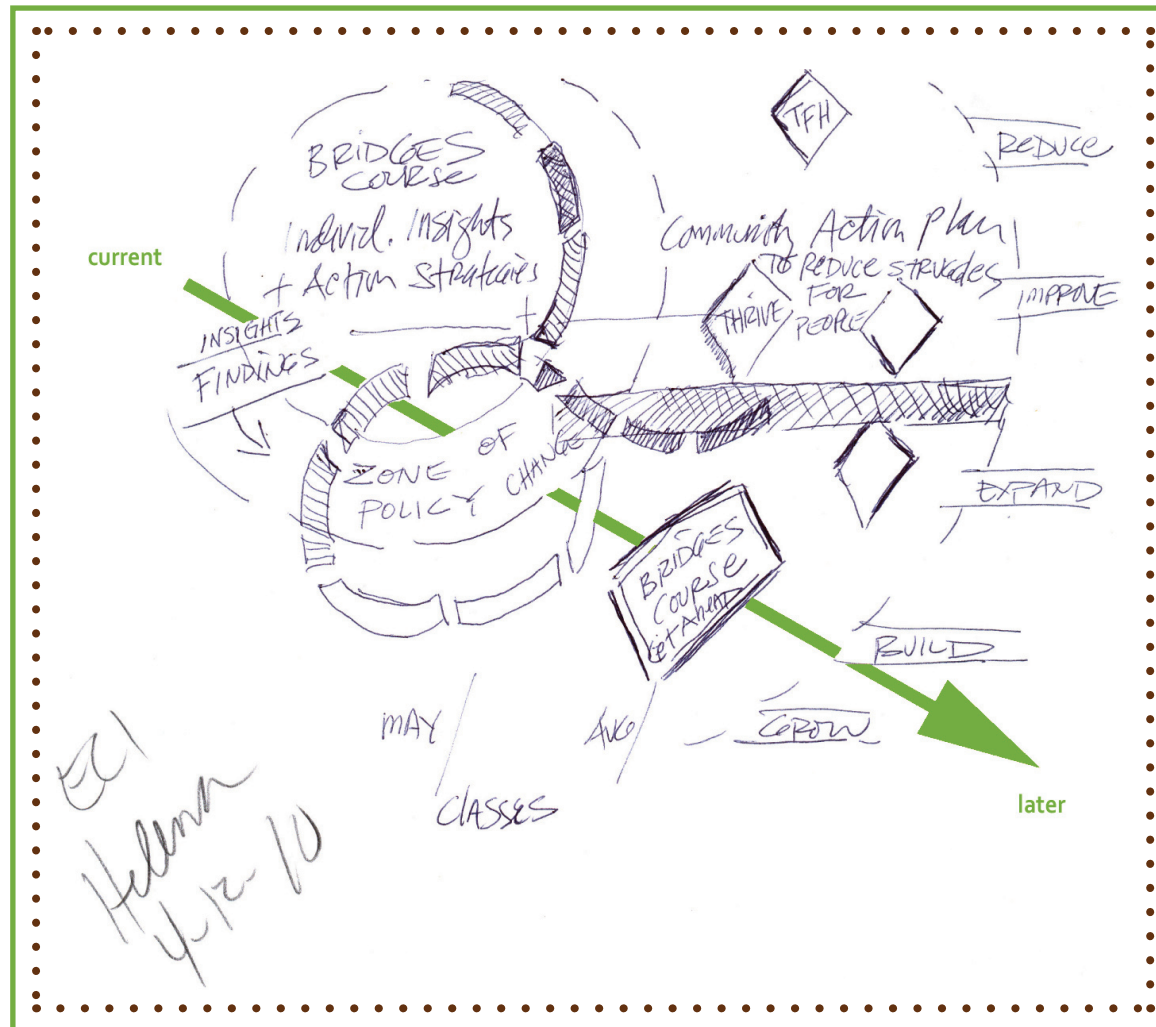 TFH
REDUCE
BRIDGES
COURSE
Individ. Insights
+ Action Strategies
Community Action Plan
TO REDUCE STRUGGLES
FOR
PEOPLE
THRIVE
IMPROVE
current
INSIGHTS
FINDINGS
ZONE OF
POLICY CHANGE
EXPAND
BRIDGES
COURSE
Get Ahead
BUILD
MAY
AUG
GROW
CLASSES
later
ECI
Helena
4-12-10